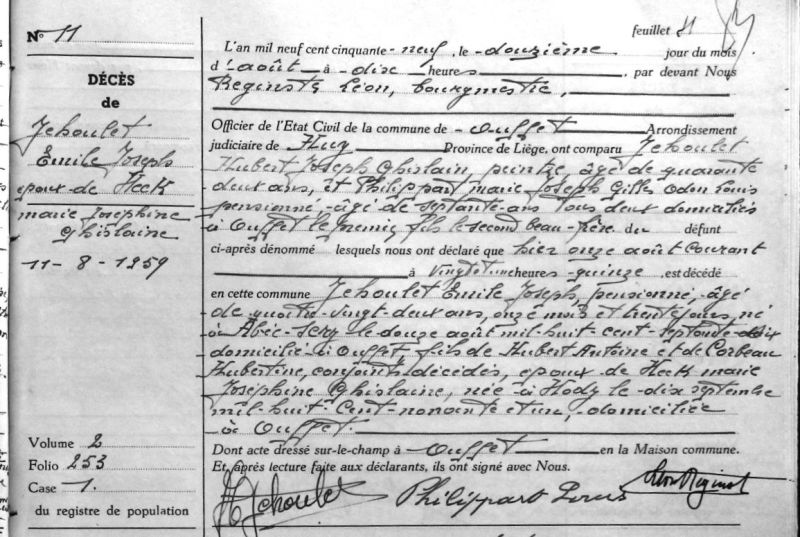 N° 11
DÉCÈS
de
Jehoulet
Emile Joseph
epoux de Heck
marie Josephine
Ghislaine
11-8-1959
Volume 2
Folio 253
Case 1.
du registre de population
feuillet 11
L'an mil neuf cent cinquante-neuf, le douzième jour du mois
d'août à dix heures, par devant Nous
Reginster Léon, bourgmestre,
Officier de l'Etat Civil de la commune de Ouffet Arrondissement
judiciaire de Huy Province de Liège, ont comparu Jehoulet
Hubert Joseph Ghislain, peintre, âgé de quarante
deux ans, et Philippart marie Joseph Gilles Odon Louis
pensionné, âgé de septante ans tous deux domiciliés
à Ouffet le premier fils le second beau-frère du défunt
ci-après dénommé lesquels nous ont déclaré que hier onze août courant
à vingt et une heures quinze, est décédé
en cette commune Jehoulet Emile Joseph, pensionné, âgé
de quatre-vingt-deux ans, onze mois et trente jours, né
à Abée-Scry le douze août mil-huit-cent-septante-six
domicilié à Ouffet, fils de Hubert Antoine et de Corbeau
Hubertine, conjoints décédés, epoux de Heck marie
Josephine Ghislaine, née à Hody le dix septembre
mil-huit-cent-nonante et un, domiciliée
à Ouffet.
Dont acte dressé sur-le-champ à Ouffet en la Maison commune.
Et, après lecture faite aux déclarants, ils ont signé avec Nous.
H Jehoulet Philippart Louis Léon Reginst